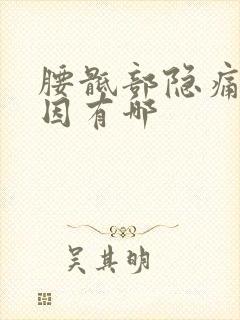 腰骶部隐痛
因有哪
吴其明